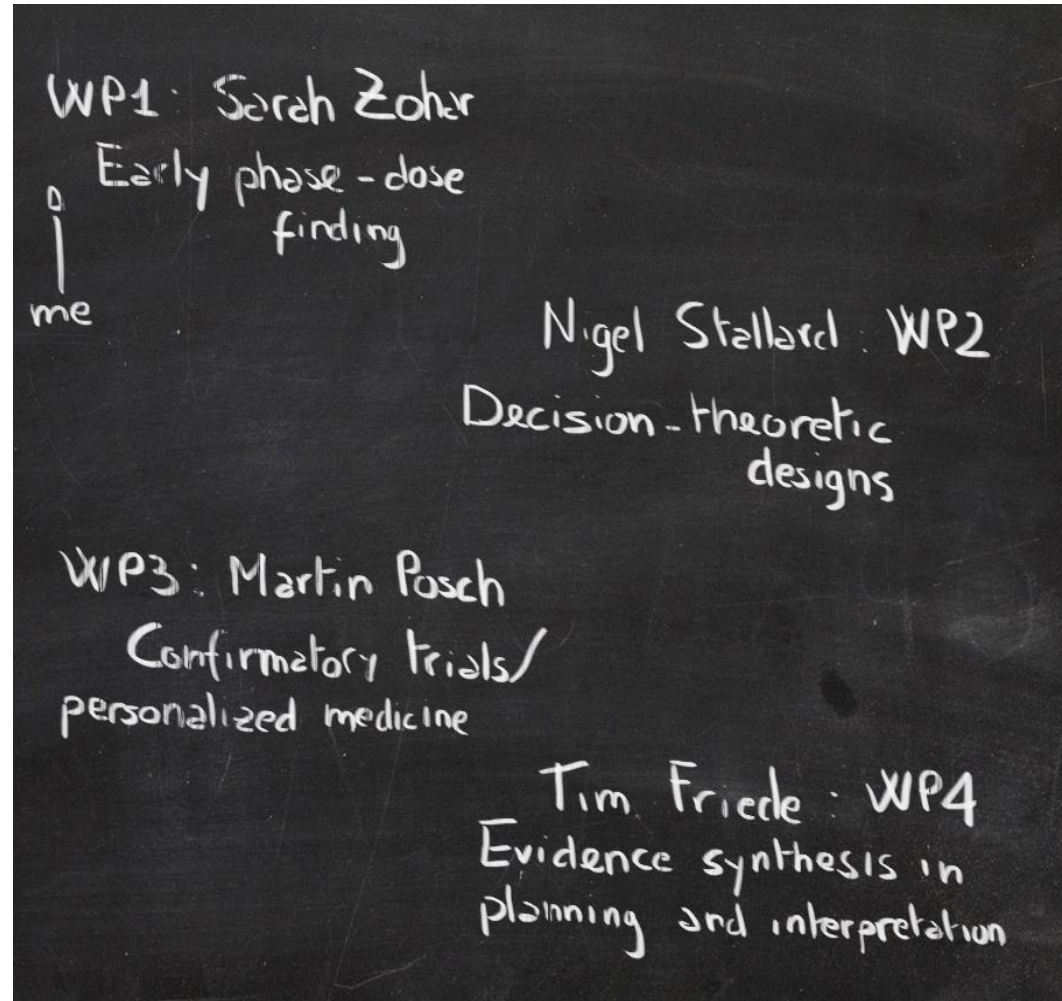 WP1: Sarah Zohar
Early phase-dose
finding
me
Nigel Stallard: WP2
Decision-theoretic
designs
WP3: Martin Posch
Confirmatory trials/
personalized medicine
Tim Friede: WP4
Evidence synthesis in
planning and interpretation